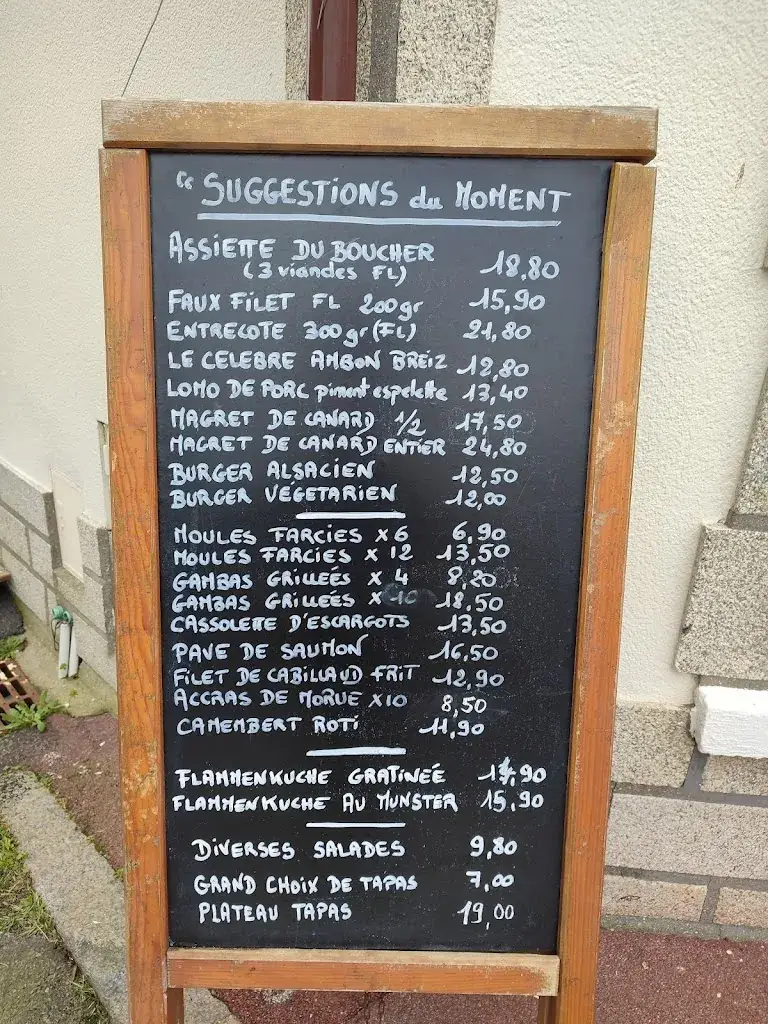 " SUGGESTIONS du MOMENT
ASSIETTE DU BOUCHER
(3 viandes FL) 18,80
FAUX FILET FL 200gr 15,90
ENTRECOTE 300gr (FL) 21,80
LE CELEBRE AMBON BREIZ 12,80
LOMO DE PORC piment espelette 13,40
MAGRET DE CANARD 1/2 17,50
MAGRET DE CANARD ENTIER 24,80
BURGER ALSACIEN 12,50
BURGER VÉGETARIEN 12,00
MOULES FARCIES X 6 6,90
MOULES FARCIES X 12 13,50
GAMBAS GRILLEÉS X 4
GAMBAS GRILLEÉS X 10 18,50
CASSOLETTE D'ESCARGOTS 13,50
PAVE DE SAUMON 16,50
FILET DE CABILLAUD FRIT 12,90
ACCRAS DE MORUE X10 8,50
CAMEMBERT ROTI 11,90
FLAMMENKUCHE GRATINEÉ
FLAMMENKUCHE AU MUNSTER 15,90
DIVERSES SALADES 9,80
GRAND CHOIX DE TAPAS 7,00
PLATEAU TAPAS 19,00